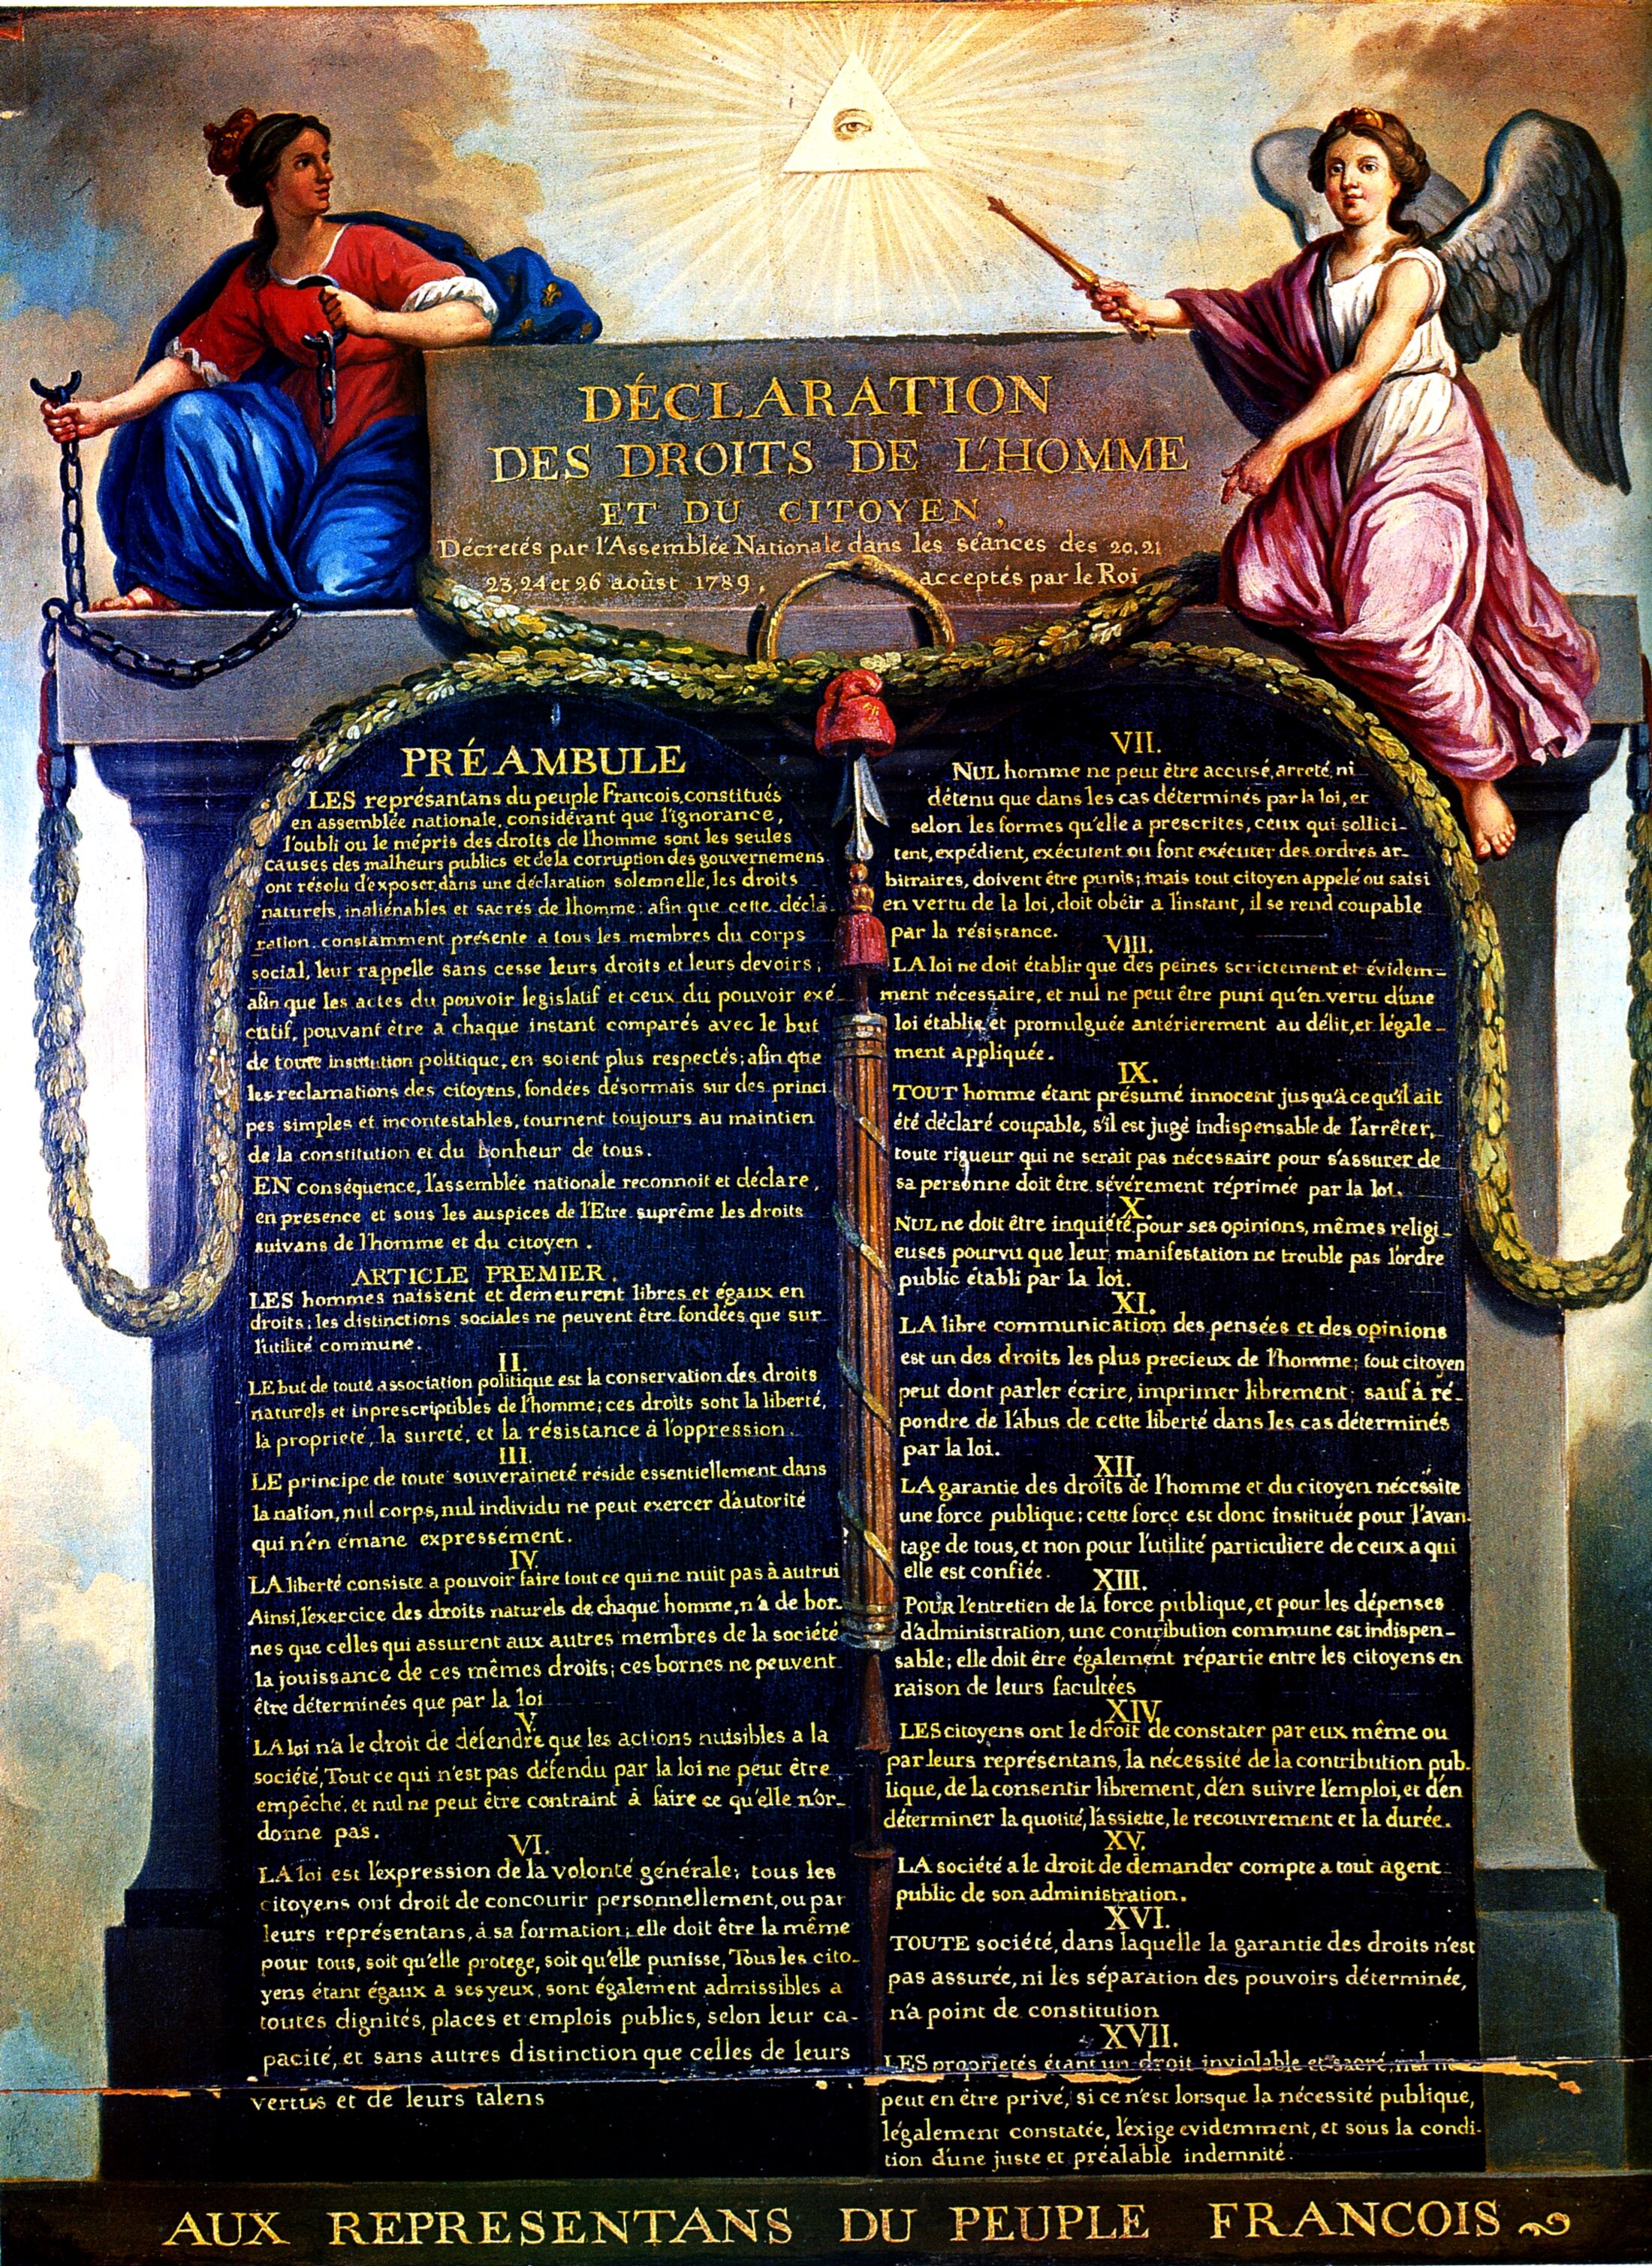 DÉCLARATION
DES DROITS DE L'HOMME
ET DU CITOYEN,
Décretés par l'Assemblée Nationale dans les séances des 20.21
23.24 et 26 aoûst 1789, acceptés par le Roi
PRÉAMBULE
LES représantans du peuple Francois, constitués
en assemblée nationale, considérant que l'ignorance,
l'oubli ou le mépris des droits de l'homme sont les seules
causes des malheurs publics et de la corruption des gouvernemens
ont résolu d'exposer, dans une déclaration solemnelle, les droits
naturels, inaliénables et sacrés de l'homme; afin que cette décla-
ration, constamment présente a tous les membres du corps
social, leur rappelle sans cesse leurs droits et leurs devoirs;
afin que les actes du pouvoir legislatif et ceux du pouvoir exé-
cutif, pouvant être a chaque instant comparés avec le but
de toute institution politique, en soient plus respectés; afin que
les reclamations des citoyens, fondées désormais sur des princi
pes simples et incontestables, tournent toujours au maintien
de la constitution et du bonheur de tous.
EN conséquence, l'assemblée nationale reconnoit et déclare,
en presence et sous les auspices de l'Etre suprême les droits
suivans de l'homme et du citoyen.
ARTICLE PREMIER.
LES hommes naissent et demeurent libres et égaux en
droits; les distinctions sociales ne peuvent être fondées que sur
l'utilité commune.
II.
LE but de toute association politique est la conservation des droits
naturels et inprescriptibles de l'homme; ces droits sont la liberté,
la propriété, la sureté, et la résistance à l'oppression.
III.
LE principe de toute souveraineté réside essentiellement dans
la nation, nul corps, nul individu ne peut exercer d'autorité
qui n'en émane expressément.
IV.
LA liberté consiste a pouvoir faire tout ce qui ne nuit pas à autrui
Ainsi, l'exercice des droits naturels de chaque homme, n'a de bor-
nes que celles qui assurent aux autres membres de la société
la jouissance de ces mêmes droits; ces bornes ne peuvent
être déterminées que par la loi
V.
LA loi n'a le droit de défendre que les actions nuisibles a la
société, Tout ce qui n'est pas défendu par la loi ne peut être
empêché, et nul ne peut être contraint à faire ce qu'elle n'or-
donne pas.
VI.
LA loi est l'expression de la volonté générale; tous les
citoyens ont droit de concourir personnellement, ou par
leurs représentans, à sa formation; elle doit être la même
pour tous, soit qu'elle protege, soit qu'elle punisse, Tous les cito-
yens étant égaux a ses yeux, sont également admissibles a
toutes dignités, places et emplois publics, selon leur ca-
pacité, et sans autres distinction que celles de leurs
vertus et de leurs talens
VII.
NUL homme ne peut être accusé, arreté, ni
détenu que dans les cas déterminés par la loi, et
selon les formes qu'elle a prescrites, ceux qui sollici-
tent, expédient, exécutent ou font exécuter des ordres ar-
bitraires, doivent être punis; mais tout citoyen appelé ou saisi
en vertu de la loi, doit obéir a l'instant, il se rend coupable
par la résistance.
VIII.
LA loi ne doit établir que des peines strictement et évidem-
ment nécessaire, et nul ne peut être puni qu'en vertu d'une
loi établie et promulguée antérierement au délit, et légale-
ment appliquée.
IX.
TOUT homme étant présumé innocent jusqu'à ce qu'il ait
été déclaré coupable, s'il est jugé indispensable de l'arrêter,
toute rigueur qui ne serait pas nécessaire pour s'assurer de
sa personne doit être sévérement réprimée par la loi.
X.
NUL ne doit être inquiété pour ses opinions, mêmes religi-
euses pourvu que leur manifestation ne trouble pas l'ordre
public établi par la loi.
XI.
LA libre communication des pensées et des opinions
est un des droits les plus precieux de l'homme; tout citoyen
peut dont parler écrire, imprimer librement; sauf à ré-
pondre de l'abus de cette liberté dans les cas déterminés
par la loi.
XII.
LA garantie des droits de l'homme et du citoyen nécessite
une force publique; cette force est donc instituée pour l'avan-
tage de tous, et non pour l'utilité particuliere de ceux a qui
elle est confiée.
XIII.
POUR l'entretien de la force publique, et pour les dépenses
d'administration, une contribution commune est indispen-
sable; elle doit être également répartie entre les citoyens en
raison de leurs facultées
XIV.
LES citoyens ont le droit de constater par eux même ou
par leurs représentans, la nécessité de la contribution pub-
lique, de la consentir librement, d'en suivre l'emploi, et d'en
déterminer la quotité, l'assiette, le recouvrement et la durée.
XV.
LA société a le droit de demander compte a tout agent
public de son administration.
XVI.
TOUTE société, dans laquelle la garantie des droits n'est
pas assurée, ni les séparation des pouvoirs déterminée,
n'a point de constitution
XVII.
LES propriétés étant un droit inviolable et sacré, nul ne
peut en être privé, si ce n'est lorsque la nécessité publique,
légalement constatée, l'exige evidemment, et sous la condi-
tion d'une juste et préalable indemnité.
AUX REPRESENTANS DU PEUPLE FRANCOIS